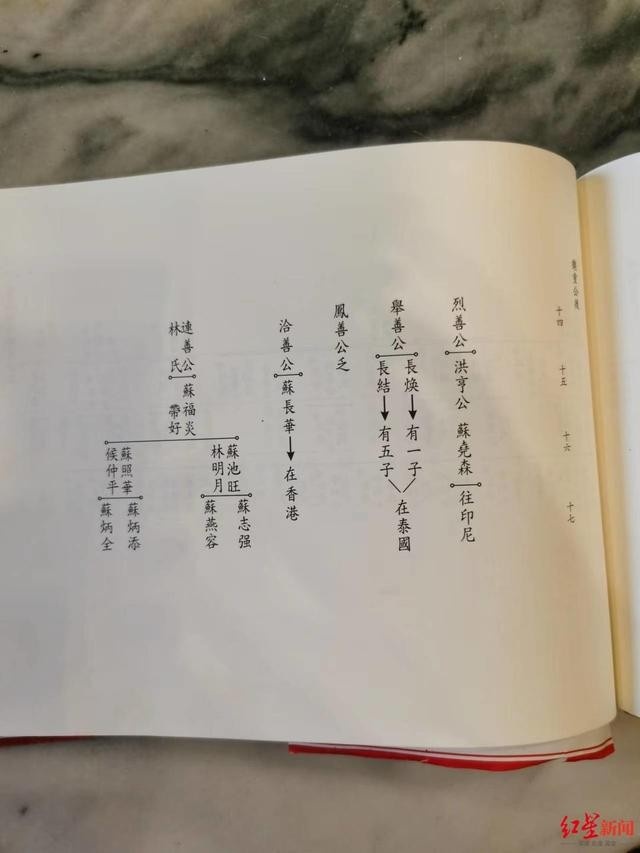 重公後
十四
十五
十六
十七
烈善公
洪亨公
蘇堯森
往印尼
舉善公
長煥
有一子
長結
有五子
在泰國
鳳善公乏
洽善公
蘇長華
在香港
連善公
林氏
蘇福炎
帶好
蘇池旺
林明月
蘇志强
蘇燕容
蘇照華
候仲平
蘇炳添
蘇炳全
红星新闻